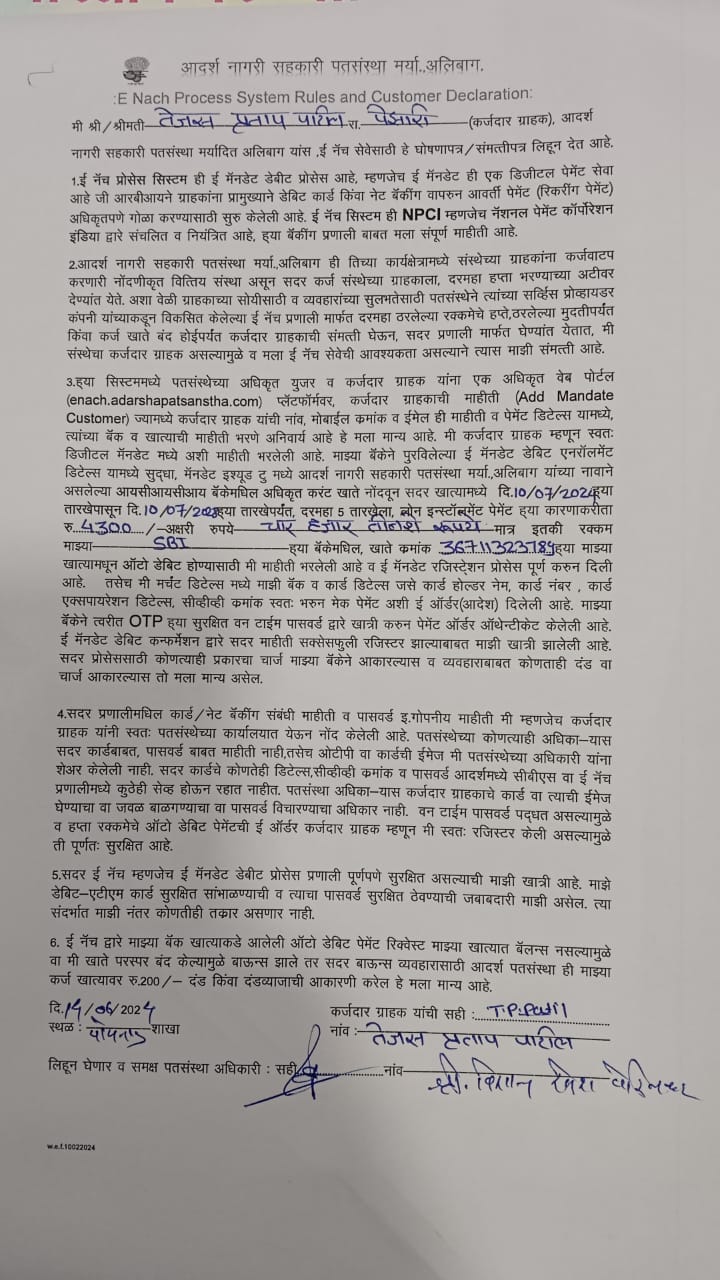 आदर्श नागरी सहकारी पतसंस्था मर्या.,अलिबाग.
:E Nach Process System Rules and Customer Declaration:
मी श्री/श्रीमती तेजस प्रताप पाटील रा. पेझारी (कर्जदार ग्राहक), आदर्श
नागरी सहकारी पतसंस्था मर्यादित अलिबाग यांस ,ई नॅच सेवेसाठी हे घोषणापत्र/संमत्तीपत्र लिहून देत आहे.
1.ई नॅच प्रोसेस सिस्टिम ही ई मॅनडेट डेबीट प्रोसेस आहे, म्हणजेच ई मॅनडेट ही एक डिजीटल पेमेंट सेवा
आहे जी आरबीआयने ग्राहकांना प्रामुख्याने डेबिट कार्ड किंवा नेट बॅकींग वापरुन आवर्ती पेमेंट (रिकरींग पेमेंट)
अधिकृतपणे गोळा करण्यासाठी सुरु केलेली आहे. ई नॅच सिस्टिम ही NPCI म्हणजेच नॅशनल पेमेंट कॉर्पोरेशन
इंडिया द्वारे संचलित व नियंत्रित आहे, ह्या बॅकींग प्रणाली बाबत मला संपूर्ण माहीती आहे.
2.आदर्श नागरी सहकारी पतसंस्था मर्या.,अलिबाग ही तिच्या कार्यक्षेत्रामध्ये संस्थेच्या ग्राहकांना कर्जवाटप
करणारी नोंदणीकृत वित्तिय संस्था असून सदर कर्ज संस्थेच्या ग्राहकाला, दरमहा हप्ता भरण्याच्या अटीवर
देण्यांत येते. अशा वेळी ग्राहकाच्या सोयीसाठी व व्यवहारांच्या सुलभतेसाठी पतसंस्थेने त्यांच्या सर्व्हिस प्रोव्हायडर
कंपनी यांच्याकडून विकसित केलेल्या ई नॅच प्रणाली मार्फत दरमहा ठरलेल्या रक्कमेचे हप्ते,ठरलेल्या मुदतीपर्यंत
किंवा कर्ज खाते बंद होईपर्यंत कर्जदार ग्राहकाची संमत्ती घेऊन, सदर प्रणाली मार्फत घेण्यांत येतात, मी
संस्थेचा कर्जदार ग्राहक असल्यामुळे व मला ई नॅच सेवेची आवश्यकता असल्याने त्यास माझी संमत्ती आहे.
3.ह्या सिस्टिममध्ये पतसंस्थेच्या अधिकृत युजर व कर्जदार ग्राहक यांना एक अधिकृत वेब पोर्टल
(enach.adarshapatsanstha.com) प्लॅटफॉर्मवर, कर्जदार ग्राहकाची माहीती (Add Mandate
Customer) ज्यामध्ये कर्जदार ग्राहक यांची नांव, मोबाईल क्रमांक व ईमेल ही माहीती व पेमेंट डिटेल्स यामध्ये,
त्यांच्या बॅक व खात्याची माहीती भरणे अनिवार्य आहे हे मला मान्य आहे. मी कर्जदार ग्राहक म्हणून स्वतः
डिजीटल मॅनडेट मध्ये अशी माहीती भरलेली आहे. माझ्या बॅकेने पुरविलेल्या ई मॅनडेट डेबिट एनरॉलमेंट
डिटेल्स यामध्ये सुद्धा, मॅनडेट इश्यूड टु मध्ये आदर्श नागरी सहकारी पतसंस्था मर्या.,अलिबाग यांच्या नावाने
असलेल्या आयसीआयसीआय बॅकेमधिल अधिकृत करंट खाते नोंदवून सदर खात्यामध्ये दि.10/07/2024ह्या
तारखेपासून दि.10/07/2028ह्या तारखेपर्यंत, दरमहा 5 तारखेला, लोन इन्स्टॉलमेंट पेमेंट ह्या कारणाकरीता
रु.4300/-अक्षरी रुपये चार हजार तीनशे रुपये मात्र इतकी रक्कम
माझ्या SBI ह्या बॅकेमधिल, खाते क्रमांक 36711323789ह्या माझ्या
खात्यामधून ऑटो डेबिट होण्यासाठी मी माहीती भरलेली आहे व ई मॅनडेट रजिस्ट्रेशन प्रोसेस पूर्ण करुन दिली
आहे. तसेच मी मर्चंट डिटेल्स मध्ये माझी बॅक व कार्ड डिटेल्स जसे कार्ड होल्डर नेम, कार्ड नंबर , कार्ड
एक्सपायरेशन डिटेल्स, सीव्हीव्ही क्रमांक स्वतः भरुन मेक पेमेंट अशी ई ऑर्डर(आदेश) दिलेली आहे. माझ्या
बॅकेने त्वरीत OTP ह्या सुरक्षित वन टाईम पासवर्ड द्वारे खात्री करुन पेमेंट ऑर्डर ऑथेन्टीकेट केलेली आहे.
ई मॅनडेट डेबिट कन्फर्मेशन द्वारे सदर माहीती सक्सेसफुली रजिस्टर झाल्याबाबत माझी खात्री झालेली आहे.
सदर प्रोसेससाठी कोणत्याही प्रकारचा चार्ज माझ्या बॅकेने आकारल्यास व व्यवहाराबाबत कोणताही दंड वा
चार्ज आकारल्यास तो मला मान्य असेल.
4.सदर प्रणालीमधिल कार्ड/नेट बॅकींग संबंधी माहीती व पासवर्ड इ.गोपनीय माहीती मी म्हणजेच कर्जदार
ग्राहक यांनी स्वतः पतसंस्थेच्या कार्यालयात येऊन नोंद केलेली आहे. पतसंस्थेच्या कोणत्याही अधिका–यास
सदर कार्डबाबत, पासवर्ड बाबत माहीती नाही,तसेच ओटीपी वा कार्डची ईमेज मी पतसंस्थेच्या अधिकारी यांना
शेअर केलेली नाही. सदर कार्डचे कोणतेही डिटेल्स,सीव्हीव्ही क्रमांक व पासवर्ड आदर्शमध्ये सीबीएस वा ई नॅच
प्रणालीमध्ये कुठेही सेव्ह होऊन रहात नाहीत. पतसंस्था अधिका–यास कर्जदार ग्राहकाचे कार्ड वा त्याची ईमेज
घेण्याचा वा जवळ बाळगण्याचा वा पासवर्ड विचारण्याचा अधिकार नाही. वन टाईम पासवर्ड पद्धत असल्यामुळे
व हप्ता रक्कमेचे ऑटो डेबिट पेमेंटची ई ऑर्डर कर्जदार ग्राहक म्हणून मी स्वतः रजिस्टर केली असल्यामुळे
ती पूर्णतः सुरक्षित आहे.
5.सदर ई नॅच म्हणजेच ई मॅनडेट डेबीट प्रोसेस प्रणाली पूर्णपणे सुरक्षित असल्याची माझी खात्री आहे. माझे
डेबिट–एटीएम कार्ड सुरक्षित सांभाळण्याची व त्याचा पासवर्ड सुरक्षित ठेवण्याची जबाबदारी माझी असेल. त्या
संदर्भात माझी नंतर कोणतीही तक्रार असणार नाही.
6. ई नॅच द्वारे माझ्या बॅक खात्याकडे आलेली ऑटो डेबिट पेमेंट रिक्वेस्ट माझ्या खात्यात बॅलन्स नसल्यामुळे
वा मी खाते परस्पर बंद केल्यामुळे बाऊन्स झाले तर सदर बाऊन्स व्यवहारासाठी आदर्श पतसंस्था ही माझ्या
कर्ज खात्यावर रु.200/– दंड किंवा दंडव्याजाची आकारणी करेल हे मला मान्य आहे.
दि.14/06/2024 कर्जदार ग्राहक यांची सही : T.P.Patil
स्थळ : पोयनाड शाखा नांव : तेजस प्रताप पाटील
लिहून घेणार व समक्ष पतसंस्था अधिकारी : सही नांव श्री.
w.e.f.10022024